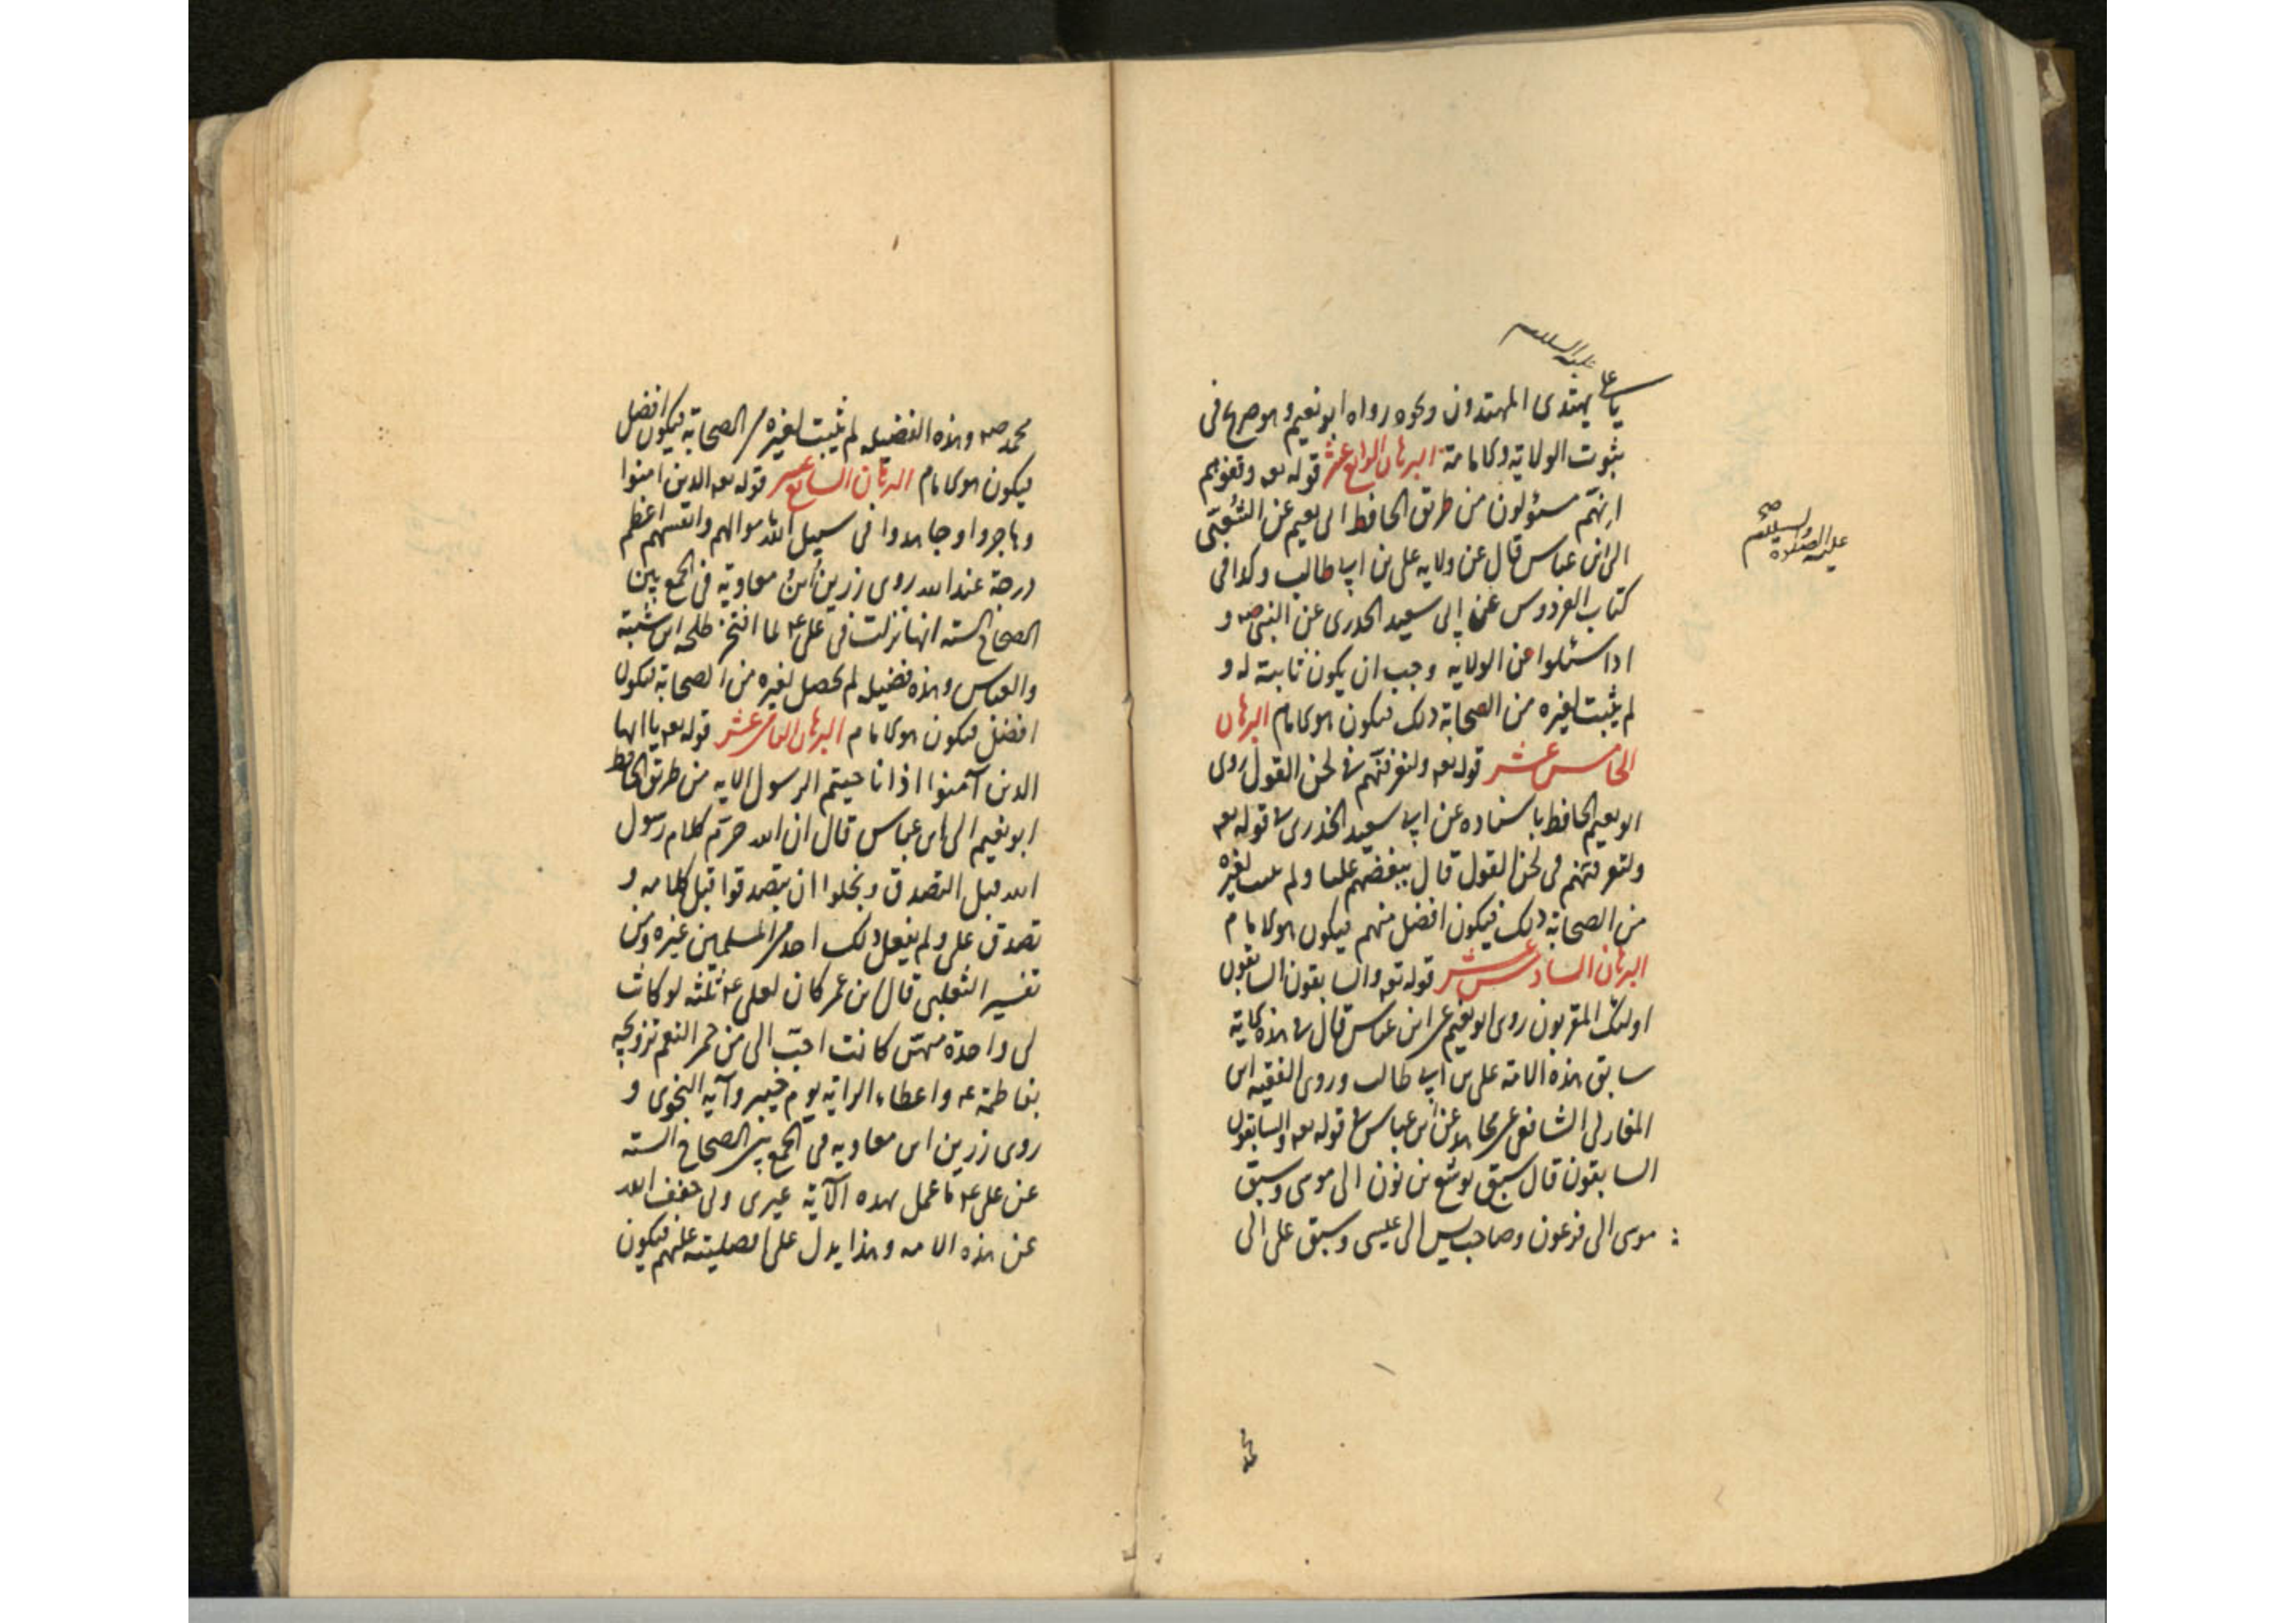 عليه السلام
يا على يهتدى المهتدون ونحوه رواه ابو نعيم وهو صريح فى
ثبوت الولاية والامامة البرهان الرابع عشر قوله تعه وقفوهم
انهم مسئولون من طريق الحافظ ابى نعيم عن الشعبى
الى ابن عباس قال عن ولايه على بن ابى طالب وكذا فى
كتاب الفردوس عن ابى سعيد الخدرى عن النبى صه و
اذا سئلوا عن الولايه وجب ان يكون ثابتة له و
لم يثبت لغيره من الصحابة ذلك فيكون هو الامام البرهان
الخامس عشر قوله تعه ولتعرفنهم فى لحن القول روى
ابو نعيم الحافظ باسناده عن ابى سعيد الخدرى فى قوله تعه
ولتعرفنهم فى لحن القول قال ببغضهم عليا ولم يثبت لغيره
من الصحابة ذلك فيكون افضل منهم فيكون هو الامام
البرهان السادس عشر قوله تعه والسابقون السابقون
اولئك المقربون روى ابو نعيم عن ابن عباس قال فى هذه الاية
سابق هذه الامة على بن ابى طالب وروى الفقيه ابن
المغازلى الشافعى عن مجاهد عن ابن عباس فى قوله تعه والسابقون
السابقون قال سبق يوشع بن نون الى موسى وسبق
موسى الى فرعون وصاحب يس الى عيسى وسبق على الى
عليه الصلوة والسلام صح
محمد
محمد صه وهذه الفضيله لم يثبت لغيره من الصحابة فيكون افضل
فيكون هو الامام البرهان السابع عشر قوله تعه الذين امنوا
وهاجروا وجاهدوا فى سبيل الله باموالهم وانفسهم اعظم
درجة عند الله روى زرين بن معاوية فى الجمع بين
الصحاح السته انها نزلت فى على ع لما افتخر طلحه ابن شيبة
والعباس وهذه فضيله لم يحصل لغيره من الصحابة فيكون
افضل فيكون هو الامام البرهان الثامن عشر قوله تعه يا ايها
الذين آمنوا اذا ناجيتم الرسول الايه من طريق الحافظ
ابو نعيم الى ابن عباس قال ان الله حرّم كلام رسول
الله قبل التصدق وبخلوا ان يتصدقوا قبل كلامه و
تصدق على ولم يفعل ذلك احد من المسلمين غيره ومن
تفسير الثعلبى قال ابن عمر كان لعلى ع ثلثه لو كانت
لى واحدة منهن كانت احبّ الى من حمر النعم تزويجه
بفاطمة ع واعطاء الراية يوم خيبر وآية النجوى و
روى زرين ابن معاويه فى الجمع بين الصحاح السته
عن على ع ما عمل بهذه الآية غيرى وبى خفف الله
عن هذه الامه وهذا يدل على افضليته عليهم فيكون